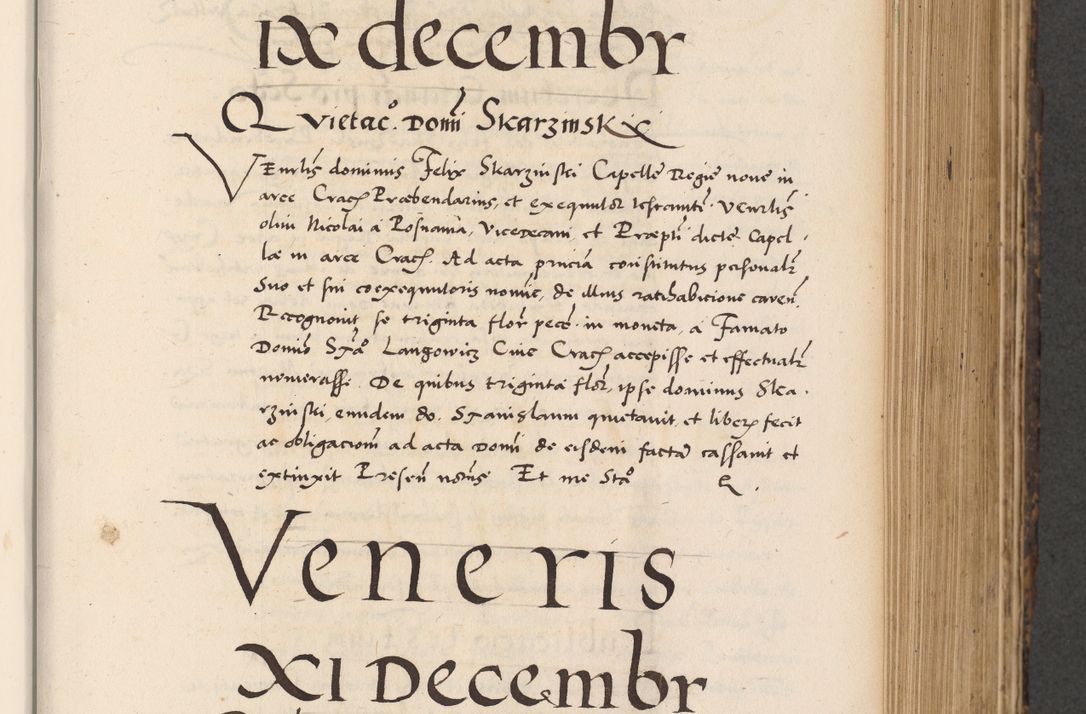 ix decembr
Quietac. Domi Skarzinsky
VEnrlis dominus Felix Skarzinski Capelle Regie noue in
arce Crach Præbendarius, et exequutor testamti Venrlis
olim Nicolai a Posnania, Vicedecani et Præpti dicte Capel
læ in arce Crach. Ad acta prncia constitutus personalr
Suo et sui coexequutoris nomie, de illius ratihabicione caven.
Recognouit se triginta flor pecc. in moneta, a Famato
Domio Stao Langowicz Ciue Crach accepisse et effectualr
numerasse. De quibus triginta flor, ipse dominus Ska
rzinski, eundem do. Stanislaum quietauit et liberx fecit
ac obligaciom ad acta Domi de eisdem facta cassauit et
extinxit Presen notns Et me Sto R.
Veneris
XI Decembr